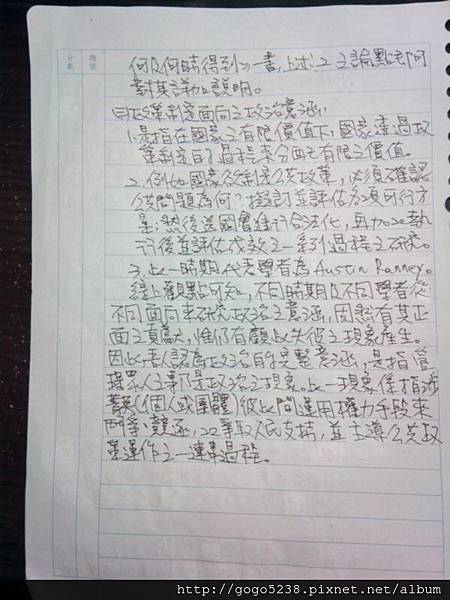 何及何時得到》一書,上述之論點即可
對其詳加說明。
政策制定面向之政治意涵:
1.是指在國家之有限價值下,國家透過政
策制定的過程來分配有限之價值。
2.例如國家欲制定公共政策,必須確認
公共問題為何?擬訂並評估各項可行方
案;然後送國會進行合法化,再加以執
行後並評估成效之一系列過程之研究。
3.此一時期代表學者為Austin Ranney。
綜上觀點可知,不同時期及不同學者從
不同面向來研究政治之意涵,固然有其正
面之貢獻,惟仍有顧此失彼之現象產生。
因此,吾人認為政治的完整意涵,是指管
理眾人之事乃是政治之現象。此一現象係指涉
菁英(個人或團體)彼此間運用權力手段來
鬥爭、競逐,以爭取人民支持,並主導公共政
策運作之一連串過程。
分數
題號
http://gogo5238.pixnet.net/album